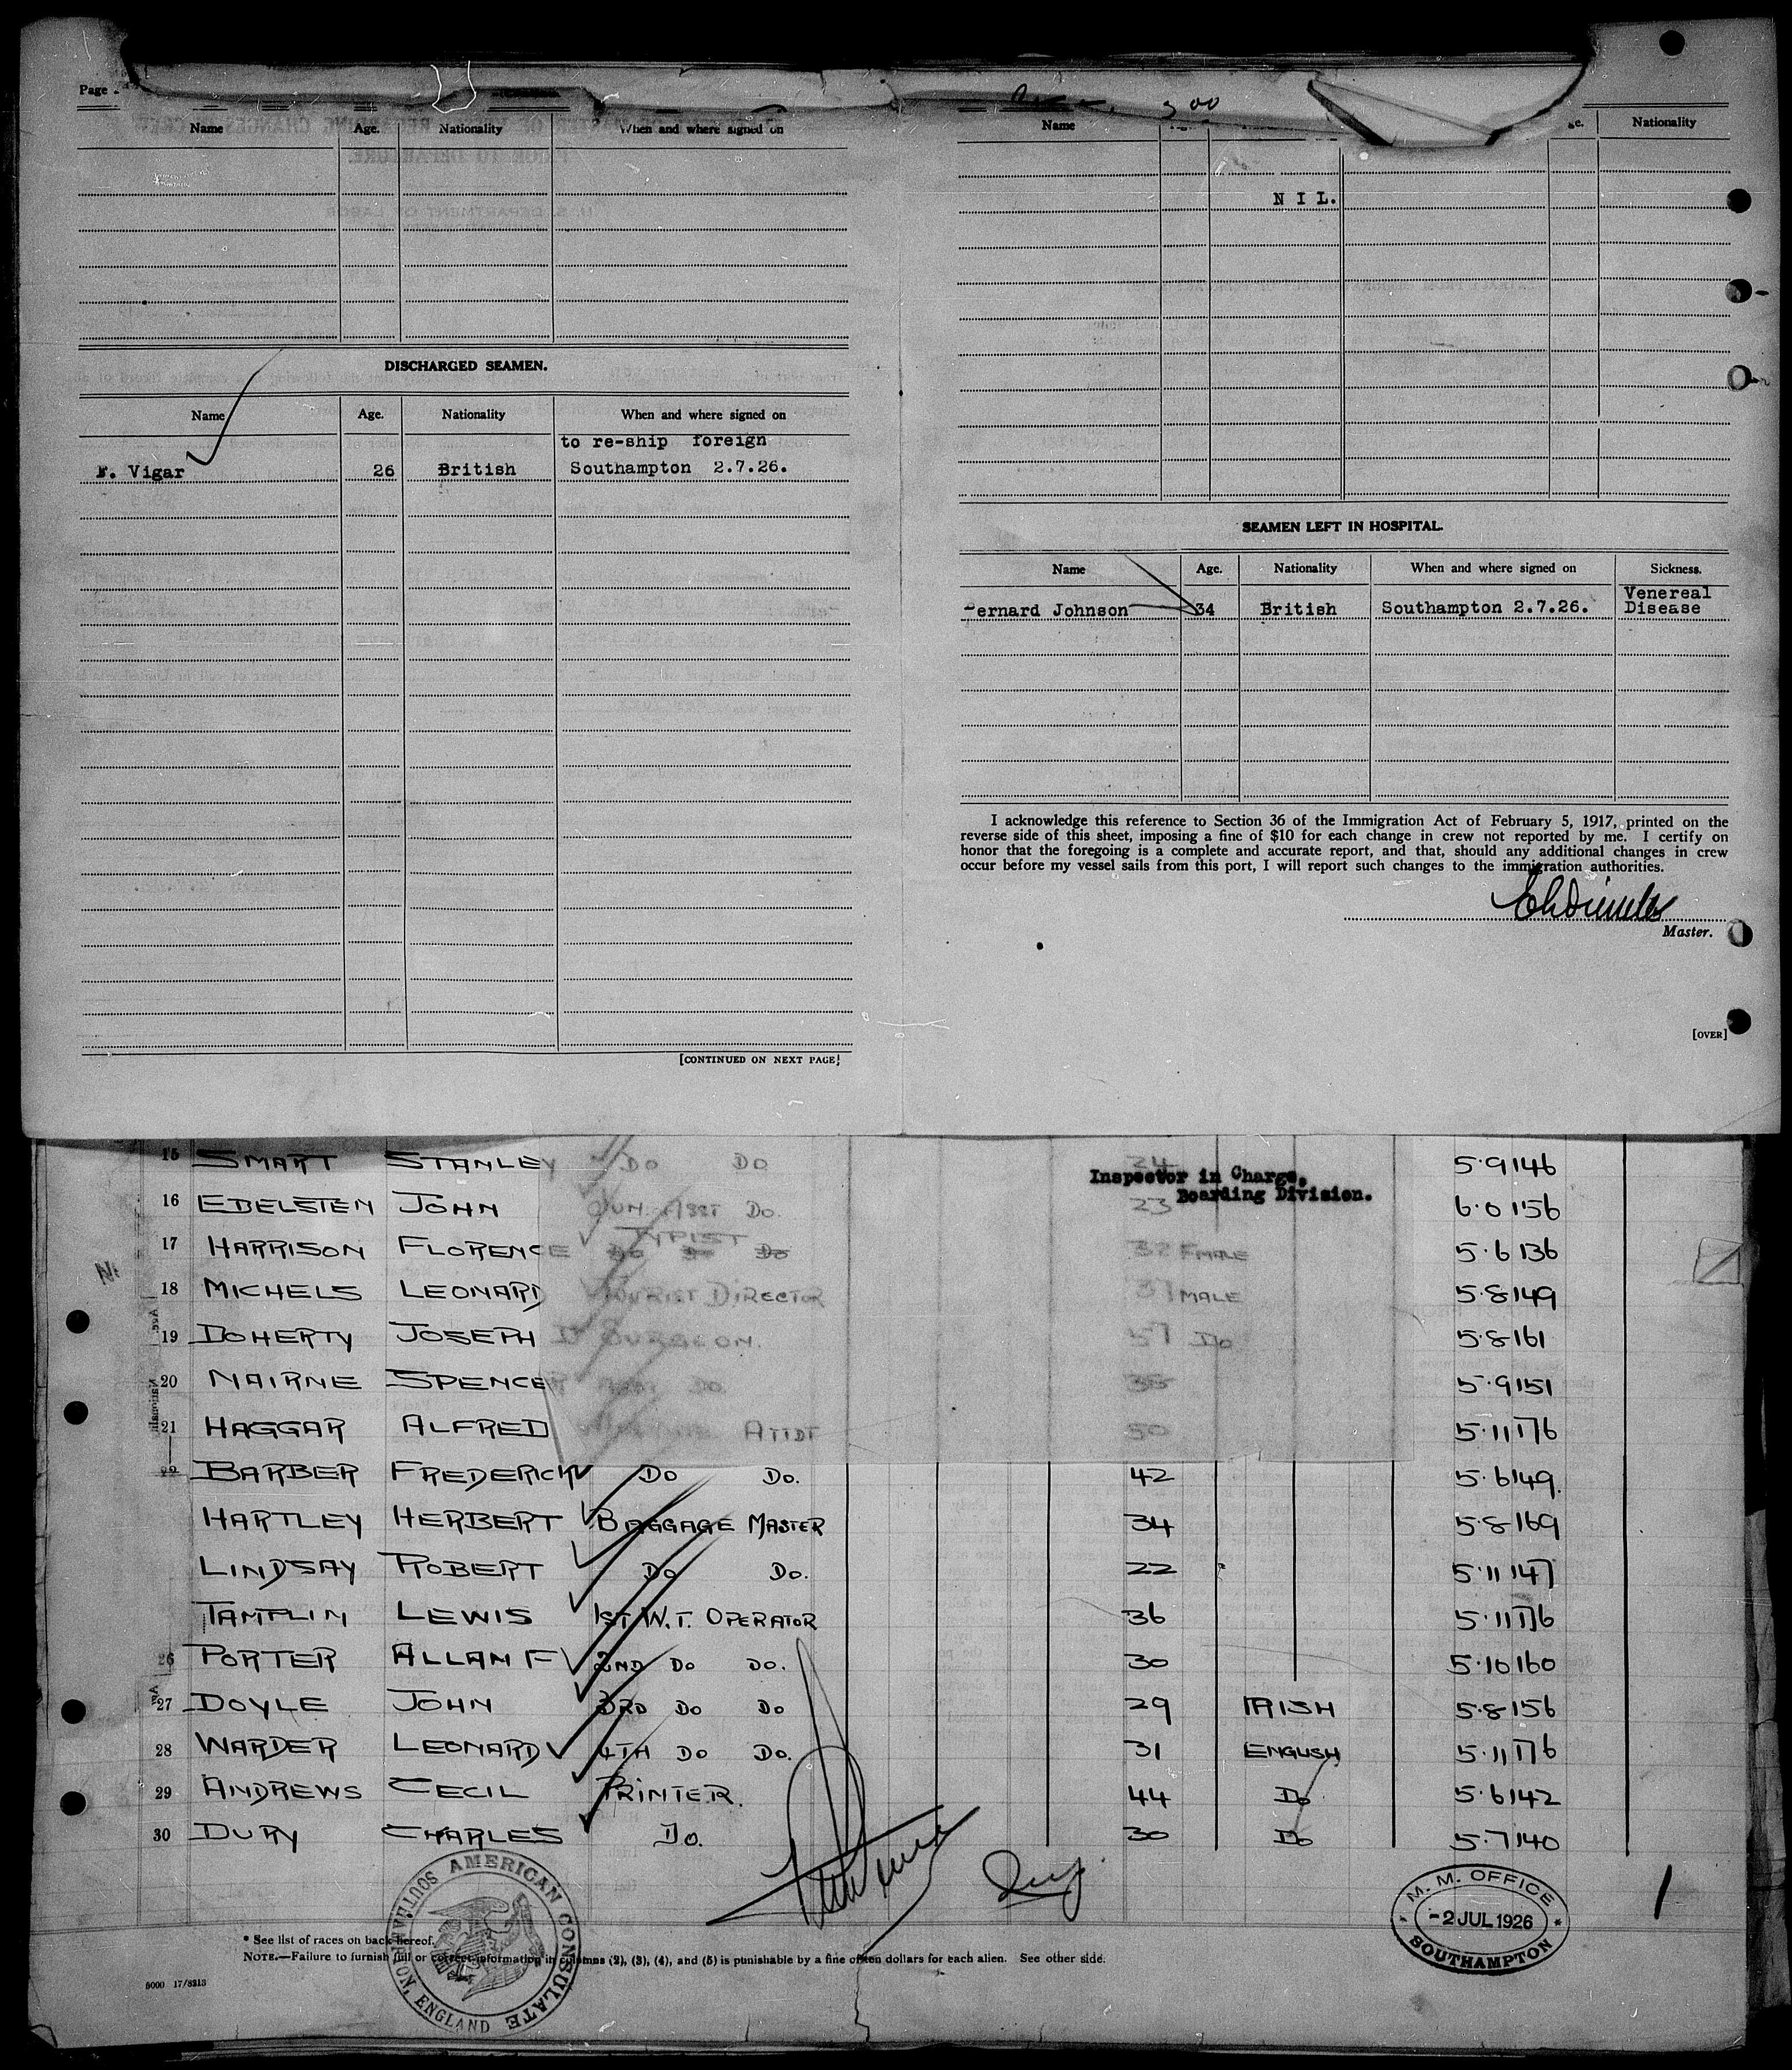 Page
Name Age. Nationality When and where signed on
DISCHARGED SEAMEN.
Name Age. Nationality When and where signed on
to re-ship foreign
F. Vigar 26 British Southampton 2.7.26.
[CONTINUED ON NEXT PAGE]
Name Nationality
N I L.
SEAMEN LEFT IN HOSPITAL.
Name Age. Nationality When and where signed on Sickness.
Venereal
ernard Johnson 34 British Southampton 2.7.26. Disease
I acknowledge this reference to Section 36 of the Immigration Act of February 5, 1917, printed on the
reverse side of this sheet, imposing a fine of $10 for each change in crew not reported by me. I certify on
honor that the foregoing is a complete and accurate report, and that, should any additional changes in crew
occur before my vessel sails from this port, I will report such changes to the immigration authorities.
Master.
[OVER]
15 SMART STANLEY DO DO 24 5.9 146
Inspector in Charge,
Boarding Division.
16 EBELSTEN JOHN JUN. ASST DO. 23 6.0 156
TYPIST
17 HARRISON FLORENCE DO DO DO 32 FMALE 5.6 136
18 MICHELS LEONARD TOURIST DIRECTOR 37 MALE 5.8 149
19 DOHERTY JOSEPH SURGEON. 57 DO 5.8 161
20 NAIRNE SPENCER ASST DO. 35 5.9 151
21 HAGGAR ALFRED ATTDT 50 5.11 176
22 BARBER FREDERICK DO DO. 42 5.6 149.
HARTLEY HERBERT BAGGAGE MASTER 34 5.8 169
LINDSAY ROBERT DO DO. 22 5.11 147
TAMPLIN LEWIS 1ST W.T. OPERATOR 36 5.11 176
26 PORTER ALLAN F 2ND DO DO. 30 5.10 160
27 DOYLE JOHN 3RD DO DO 29 IRISH 5.8 156
28 WARDER LEONARD 4TH DO DO. 31 ENGLISH 5.11 176
29 ANDREWS CECIL PRINTER. 44 DO 5.6 142
30 DURY CHARLES DO. 30 DO 5.7 140
AMERICAN CONSULATE
SOUTHAMPTON, ENGLAND
M. M. OFFICE
-2 JUL 1926
SOUTHAMPTON
* See list of races on back hereof.
NOTE.—Failure to furnish full or correct information in columns (2), (3), (4), and (5) is punishable by a fine of ten dollars for each alien. See other side.
5000 17/8213